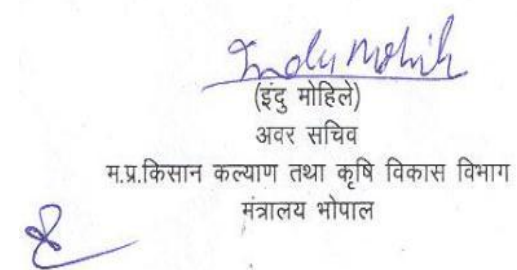 Indu Mohile
(इंदु मोहिले)
अवर सचिव
म.प्र.किसान कल्याण तथा कृषि विकास विभाग
मंत्रालय भोपाल